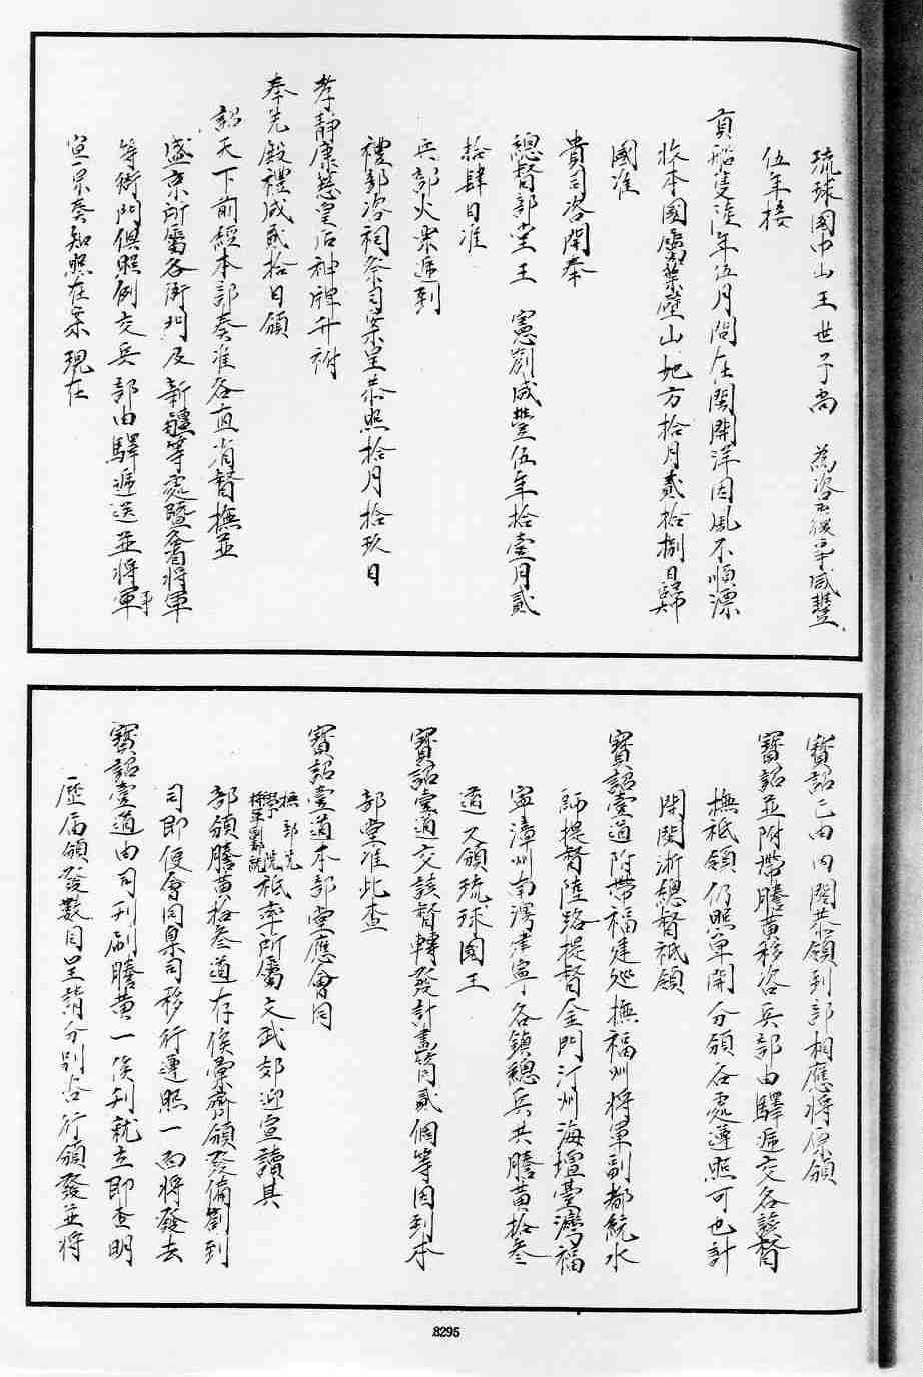 琉球國中山王世子尚　為咨覆事咸豐
伍年接
貢船隻陸年伍月間在閩開洋因風不順漂
收本國屬葉壁山地方拾月貳拾捌日歸
國准
貴司咨開奉
總督部堂王　憲劄咸豐伍年拾壹月貳
拾肆日准
兵部火票遞到
禮部咨祠祭司案呈恭照拾月拾玖日
孝靜康慈皇后神牌升祔
奉先殿禮成貳拾日頒
詔天下前經本部奏准各直省督撫並
盛京所屬各衙門及新疆等處暨各省將軍
等衙門俱照例交兵部由驛遞送並將軍
宣示奏知照在案現在
寶詔已由內閣恭領到部相應將原領
寶詔並附帶謄黃移咨兵部由驛遞交各該督
撫祗領仍照單開分頒各處遵照可也計
開閩浙總督祗領
寶詔壹道附帶福建巡撫福州將軍副都統水
師提督陸路提督金門汀州海壇臺灣福
寧漳州南澳建寧各鎮總兵共謄黃拾叁
道又頒琉球國王
寶詔壹道交該督轉發計畫筒貳個等因到本
部堂准此查
寶詔壹道本部堂應會同
撫部院
學院
將軍副都統
祗率所屬文武郊迎宣讀其
部頒謄黃拾叁道存俟彙齊頒發備劄到
司即便會同臬司移行遵照一面將發去
寶詔壹道由司刊刷謄黃一俟刊就立即查明
歷屆頒發數目呈請分別咨行頒發並將
8295